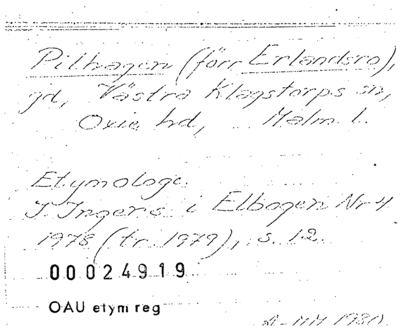 Pilhagen (förr Erlandsro),
gd, Västra Klagstorps sn,
Oxie hd, Malm. l.
Etymologi.
I. Ingers i Elbogen Nr 4
1978 (tr. 1979), s. 12.
00024919
OAU etym reg
1980.